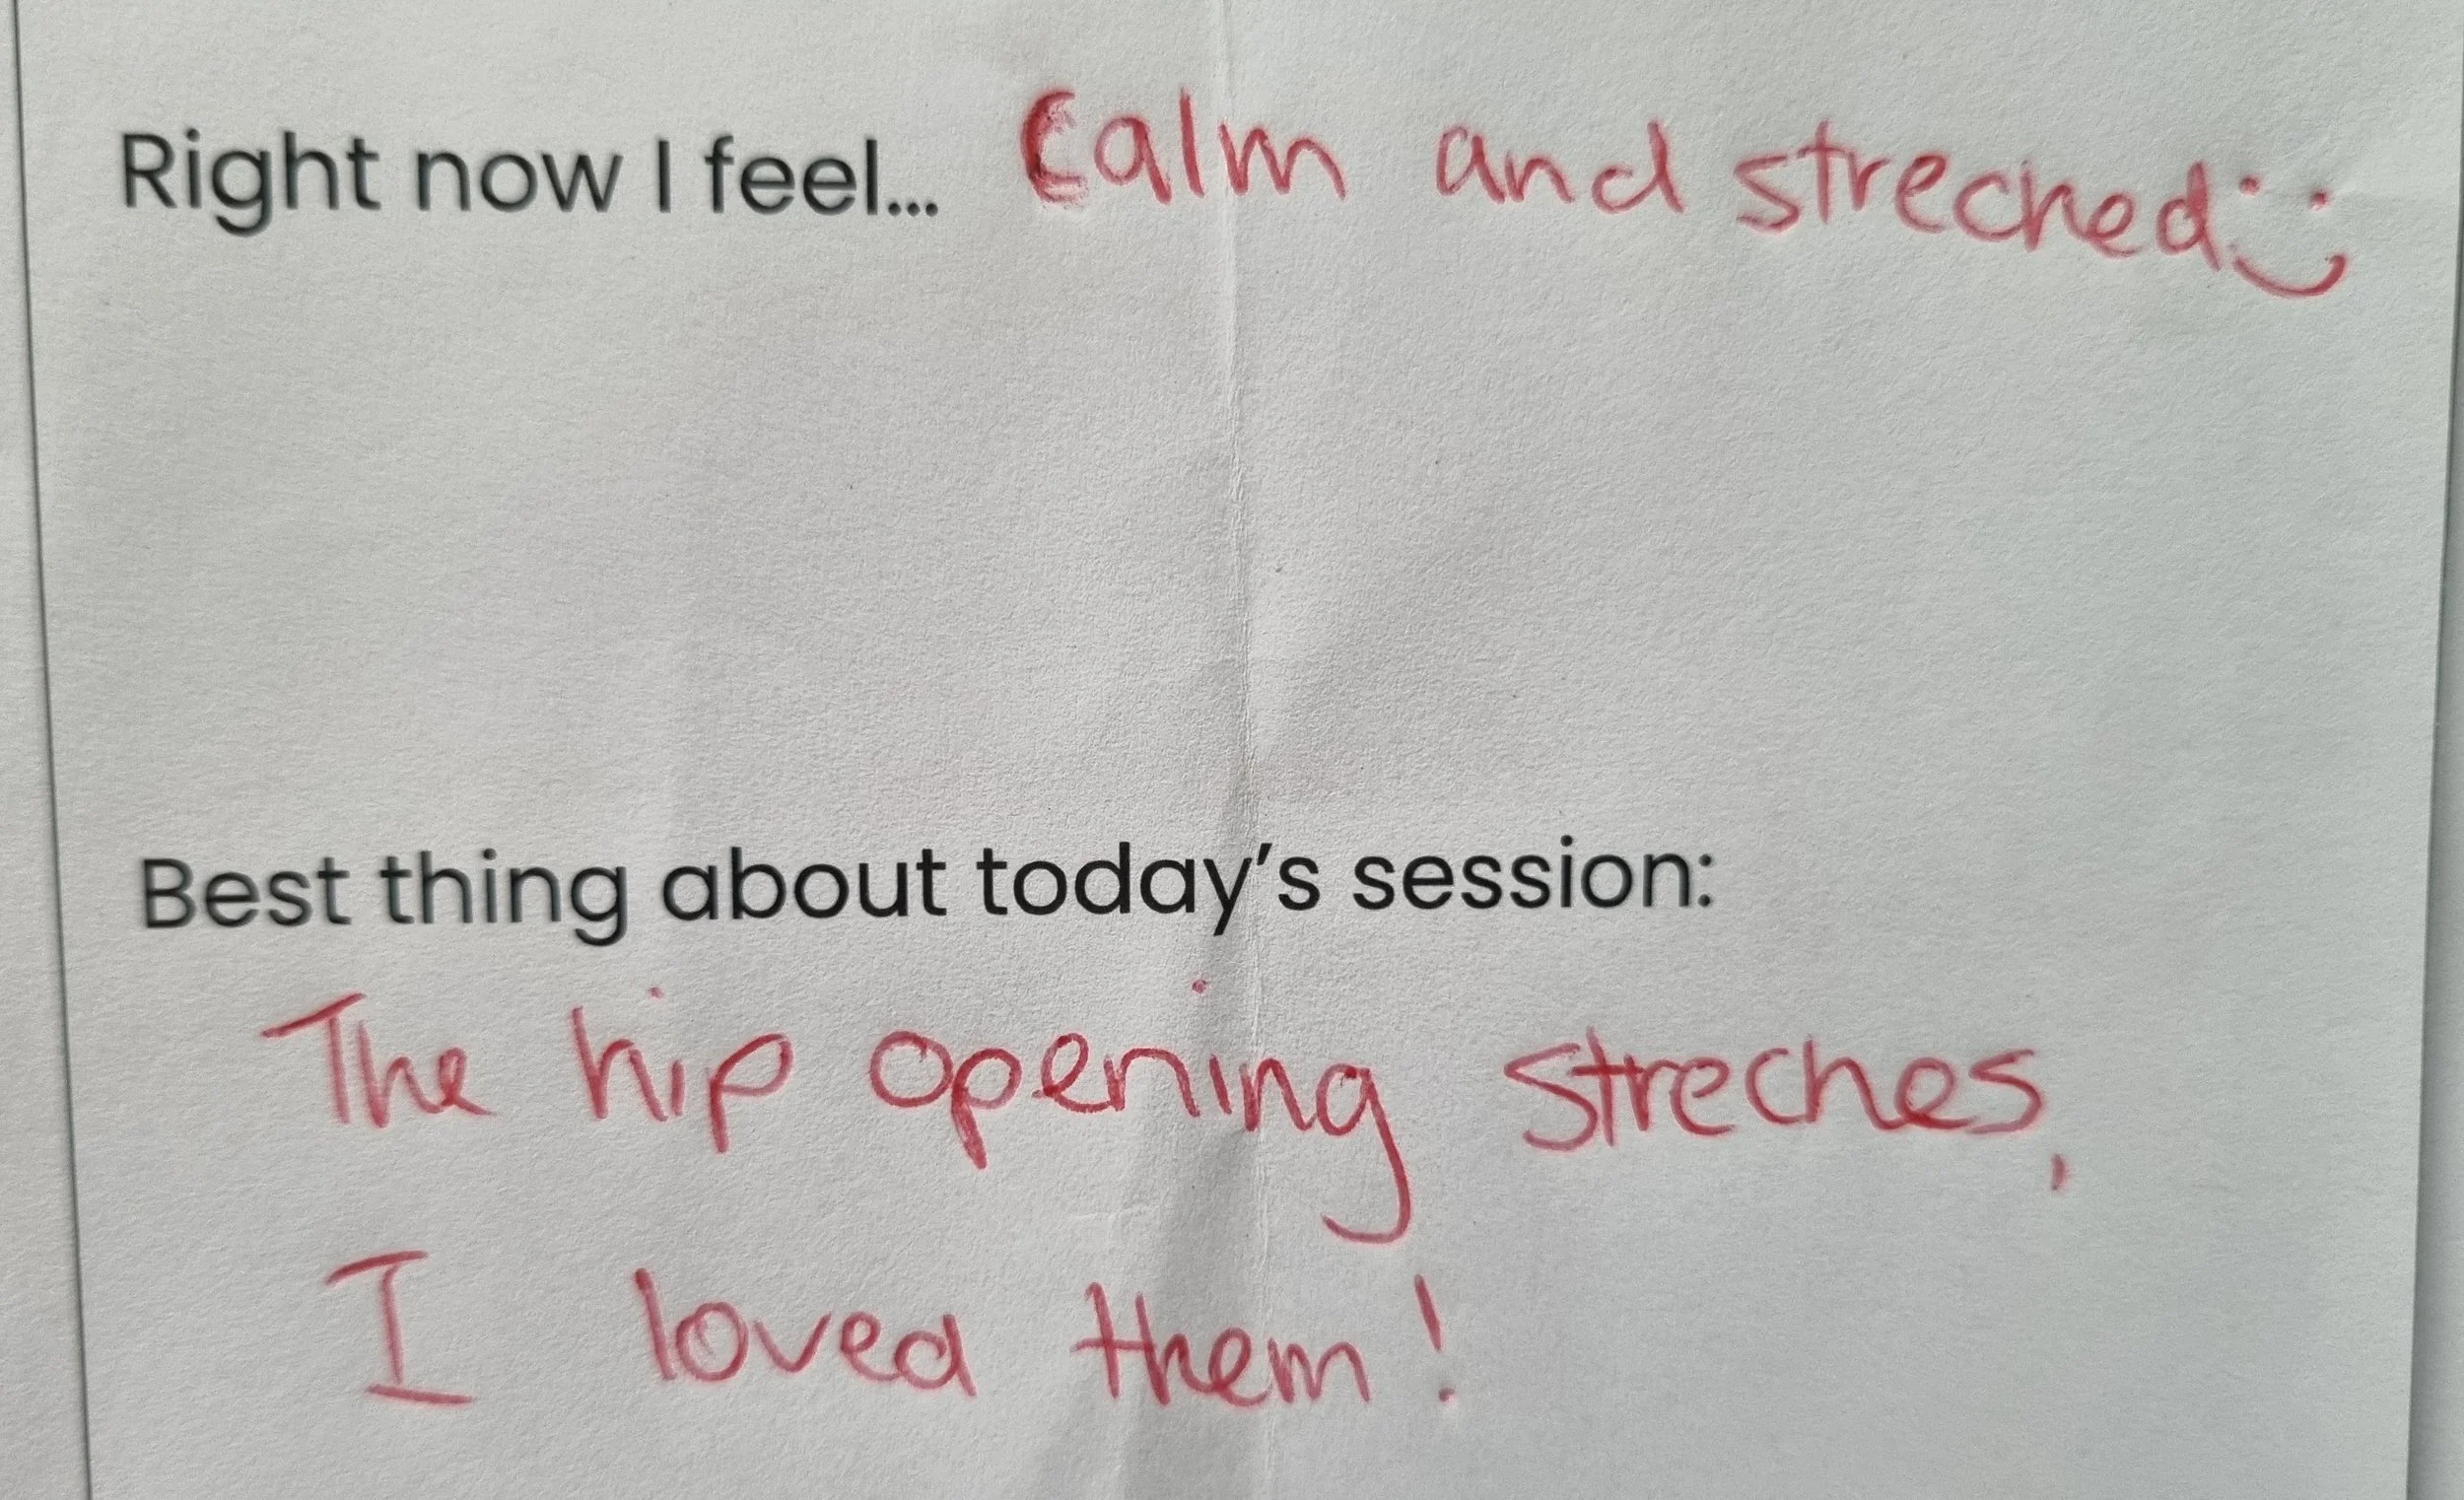 Right now I feel... Calm and streched :)
Best thing about today's session:
The hip opening streches,
I loved them!